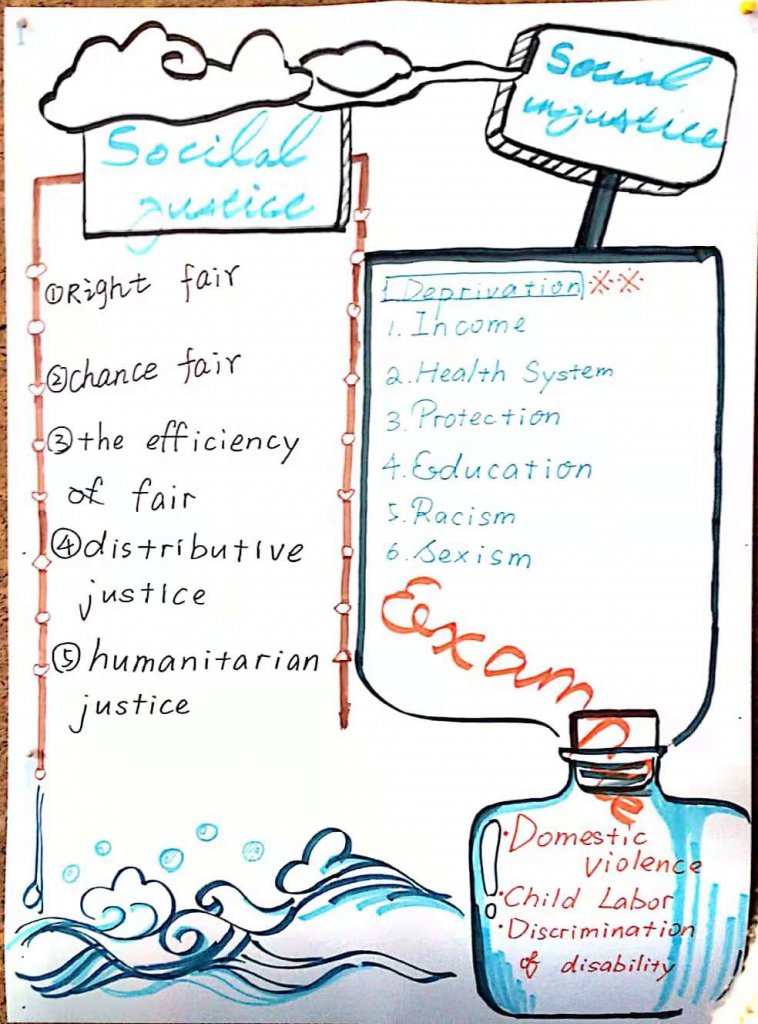 Socilal
justice
①Right fair
②chance fair
③the efficiency
of fair
④distributive
justice
⑤humanitarian
justice
Social
injustice
1.Deprivation ※※
1. Income
2. Health System
3. Protection
4. Education
5. Racism
6. Sexism
Example
! · Domestic
violence
· Child Labor
· Discrimination
of disability